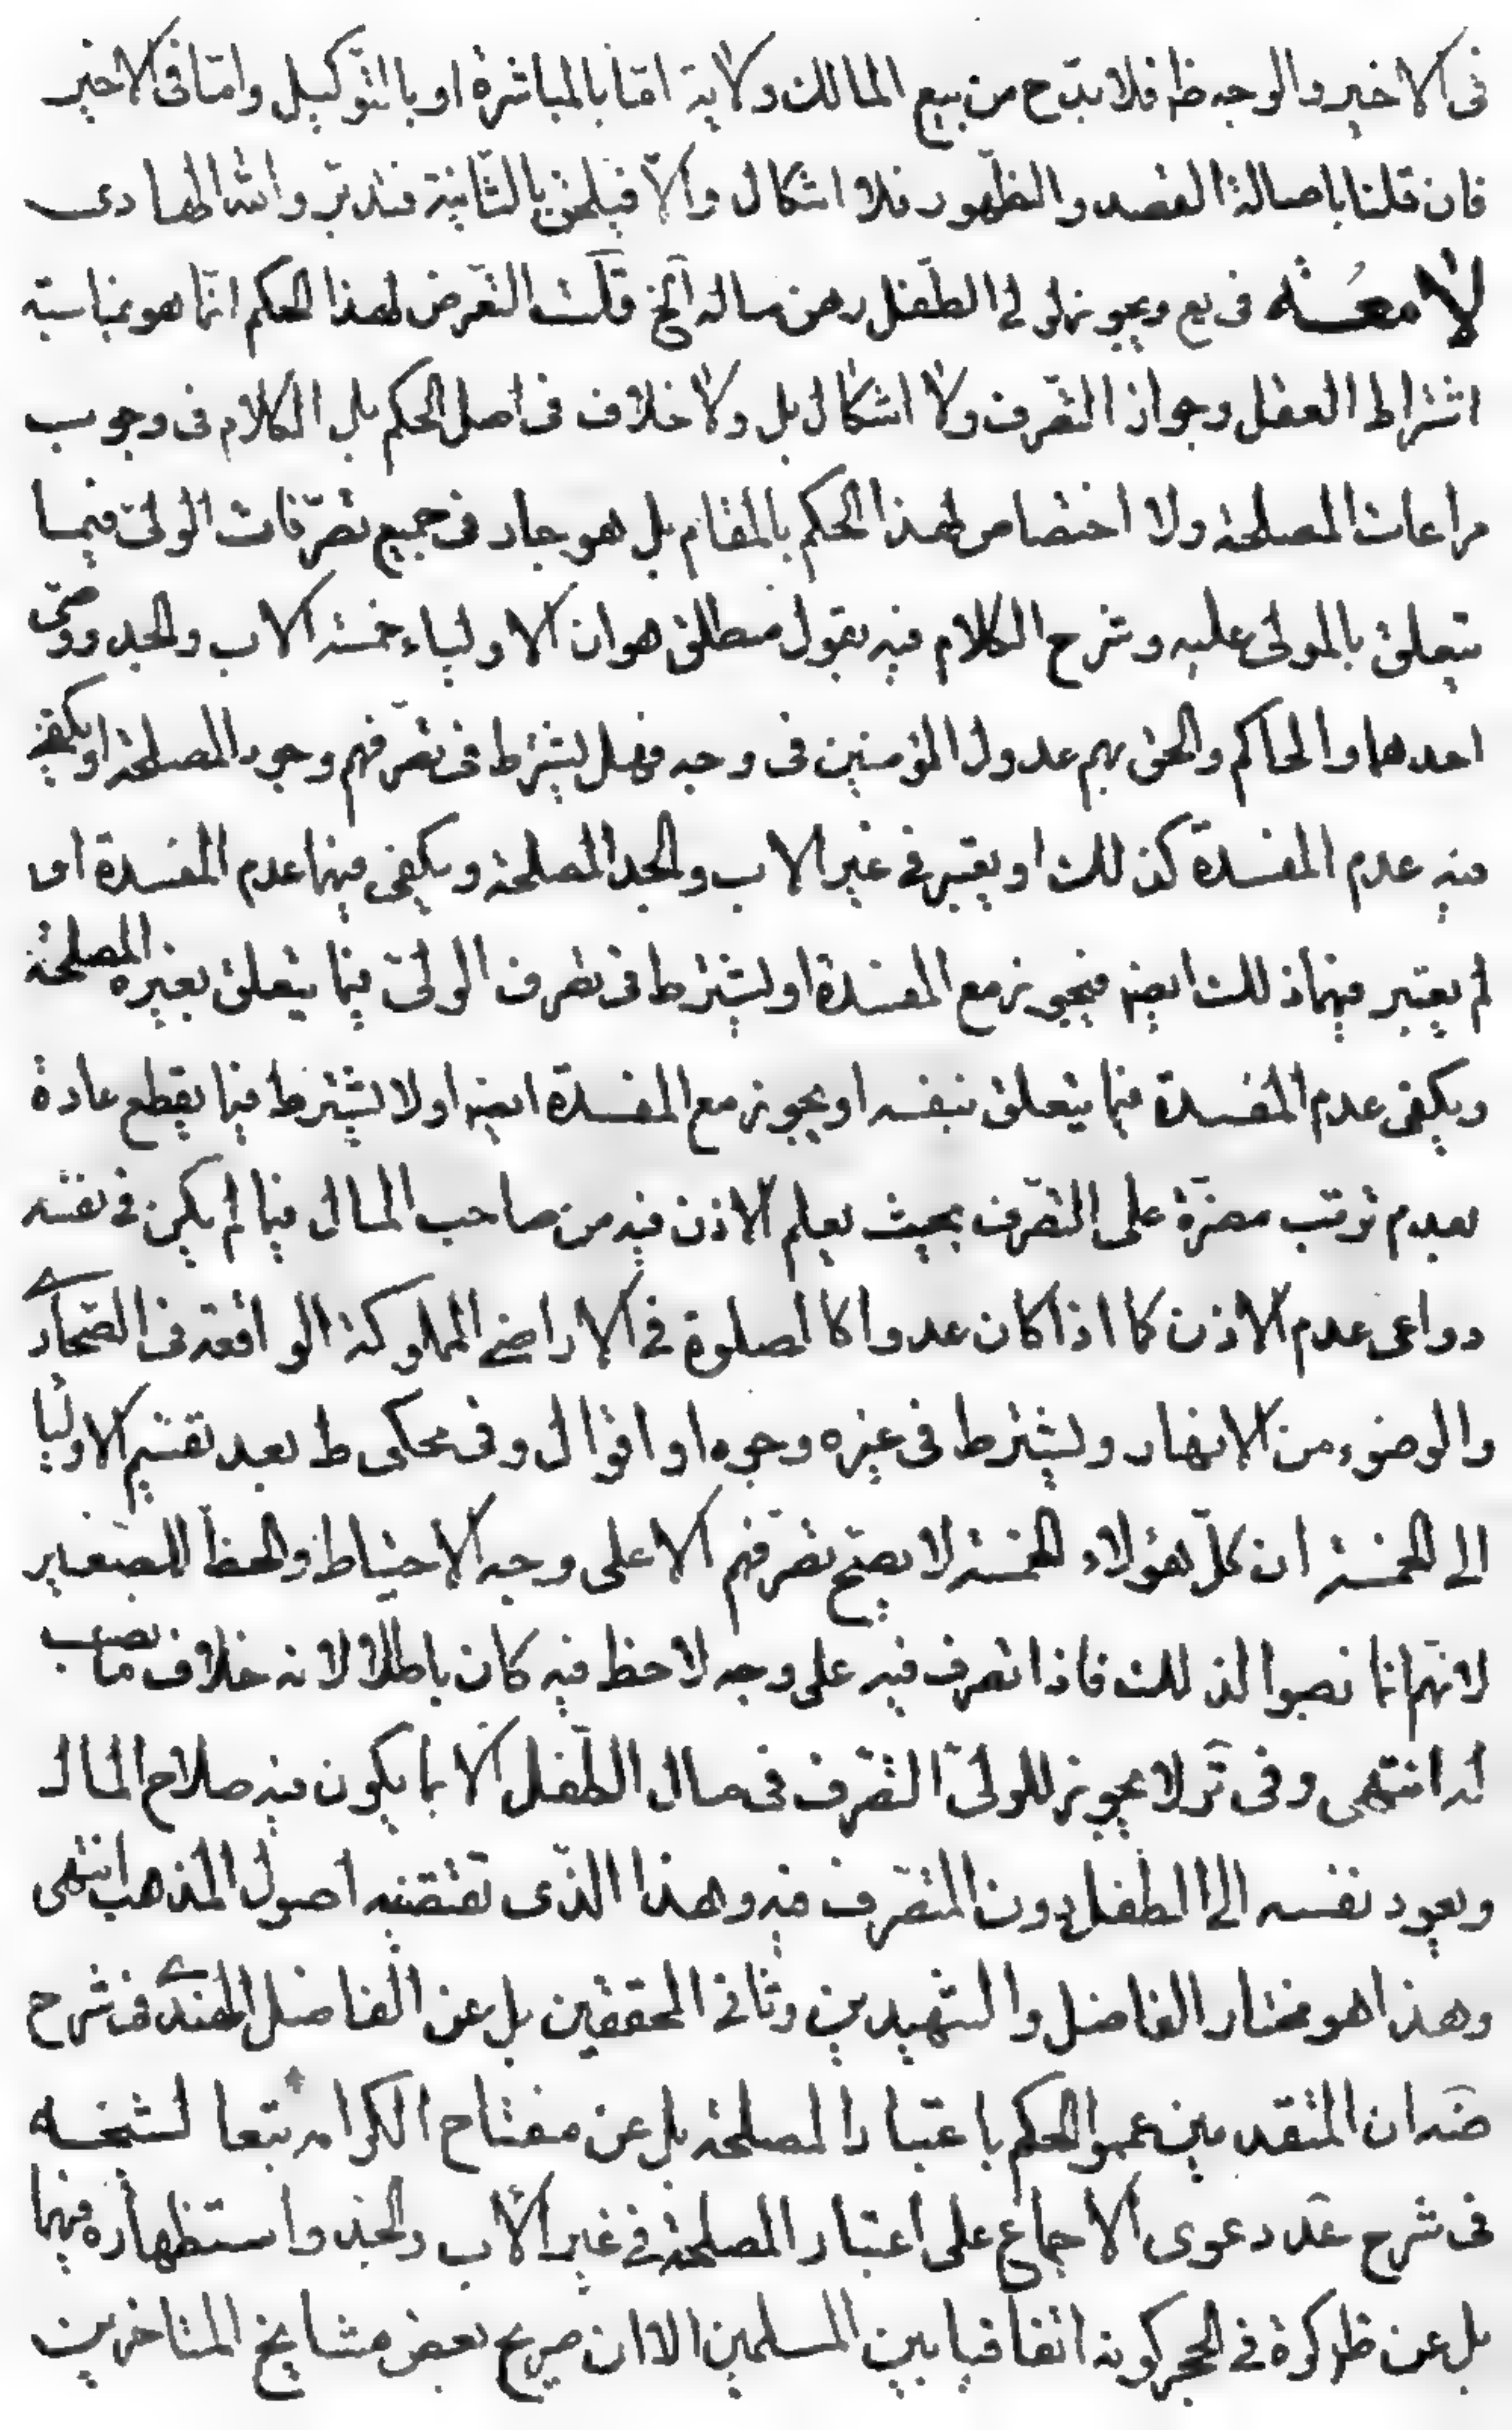 فى الاخير والوجه ظ فلا بدّ ح من بيع المالك ولاية امّا بالمباشرة او بالتّوكيل وامّا فى الاخير
فان قلنا باصالة القصد والظّهور فلا اشكال والّا فيلحق بالثّانية فتدبّر والله الهادى
لامعة فى يع ويجوز لولى الطّفل رهن ماله آلخ قلت التعّرض لهذا الحكم انّما هو بمناسبة
اشتراط العقل وجواز التّصرف ولا اشكال بل ولا خلاف فى اصل الحكم بل الكلام فى وجوب
مراعات المصلحة ولا اختصاص لهذا الحكم بالمقام بل هو جار فى جميع تصرّفات الولىّ فيما
يتعلق بالمولى عليه وشرح الكلام فيه بقول مطلق هو ان الاولياء خمسة الاب والجد ووصىّ
احدهما والحاكم والحق بهم عدول المؤمنين فى وجه فهل يشترط فى تصرّفهم وجود المصلحة او يكفى
فيه عدم المفسدة كذلك او يعتبر فى غير الاب والجد المصلحة ويكفى فيهما عدم المفسدة او
لم يعتبر فيهما ذلك ايضه فيجوز مع المفسدة او يشترط فى تصرف الولىّ فيما يتعلق بغيره المصلحة
ويكفى عدم المفسدة فيما يتعلق بنفسه او يجوز مع المفسدة ايضه او لا يشترط فيما يقطع عادة
بعدم ترتب مضرّة على التصّرف بحيث يعلم الاذن فيه من صاحب المال فيما لم يكن فى نفسه
دواعى عدم الاذن كما اذا كان عدوا كالصلوة فى الاراضى المملوكة الواقعة فى الصّحارى
والوضوء من الانهار ويشترط فى غيره وجوه او اقوال وفى محكى ط بعد تقسيم الاوليا
الى الخمسة ان كلّ هؤلاء الخمسة لا يصحّ تصرّفهم الا على وجه الاحتياط والحظّ للصّغير
لانّهم انما نصبوا لذلك فاذا تصرف فيه على وجه لا حظ فيه كان باطلا لانه خلاف ما نصب
له انتهى وفى ئر لا يجوز للولىّ التصّرف فى مال الطّفل الّا بما يكون فيه صلاح المال
ويعود نفسه الى الطفل دون المتصّرف فيه وهذا الذّى تقتضيه اصول المذهب انتهى
وهذا هو مختار الفاضل والشهيدين وثانى المحققين بل عن الفاضل الهندى فى شرح
ضه ان المتقدمين عمموا الحكم باعتبار المصلحة بل عن مفتاح الكرامه تبعا لشيخه
فى شرح عد دعوى الاجماع على اعتبار المصلحة فى غير الاب والجد واستظهاره فيهما
بل عن ظ كرة فى الحجر كونه اتفاقيا بين المسلمين الا ان صريح بعض مشايخ المتاخرين